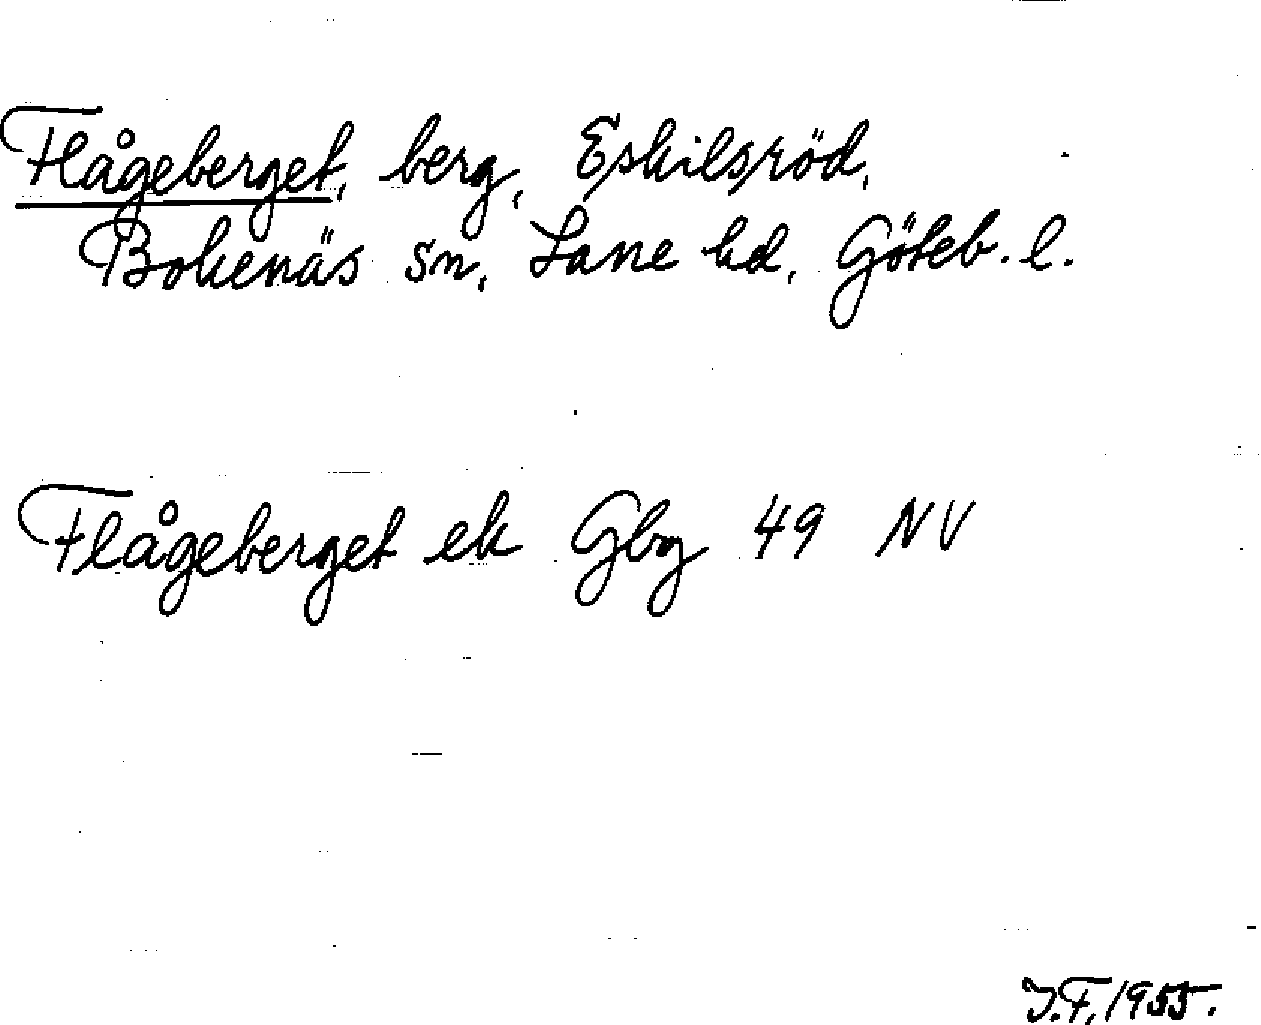 Flågeberget, berg, Eskilsröd,
Bokenäs sn, Lane hd, Göteb. l.
Flågeberget ek Gbg 49 NV
J.F. 1955.